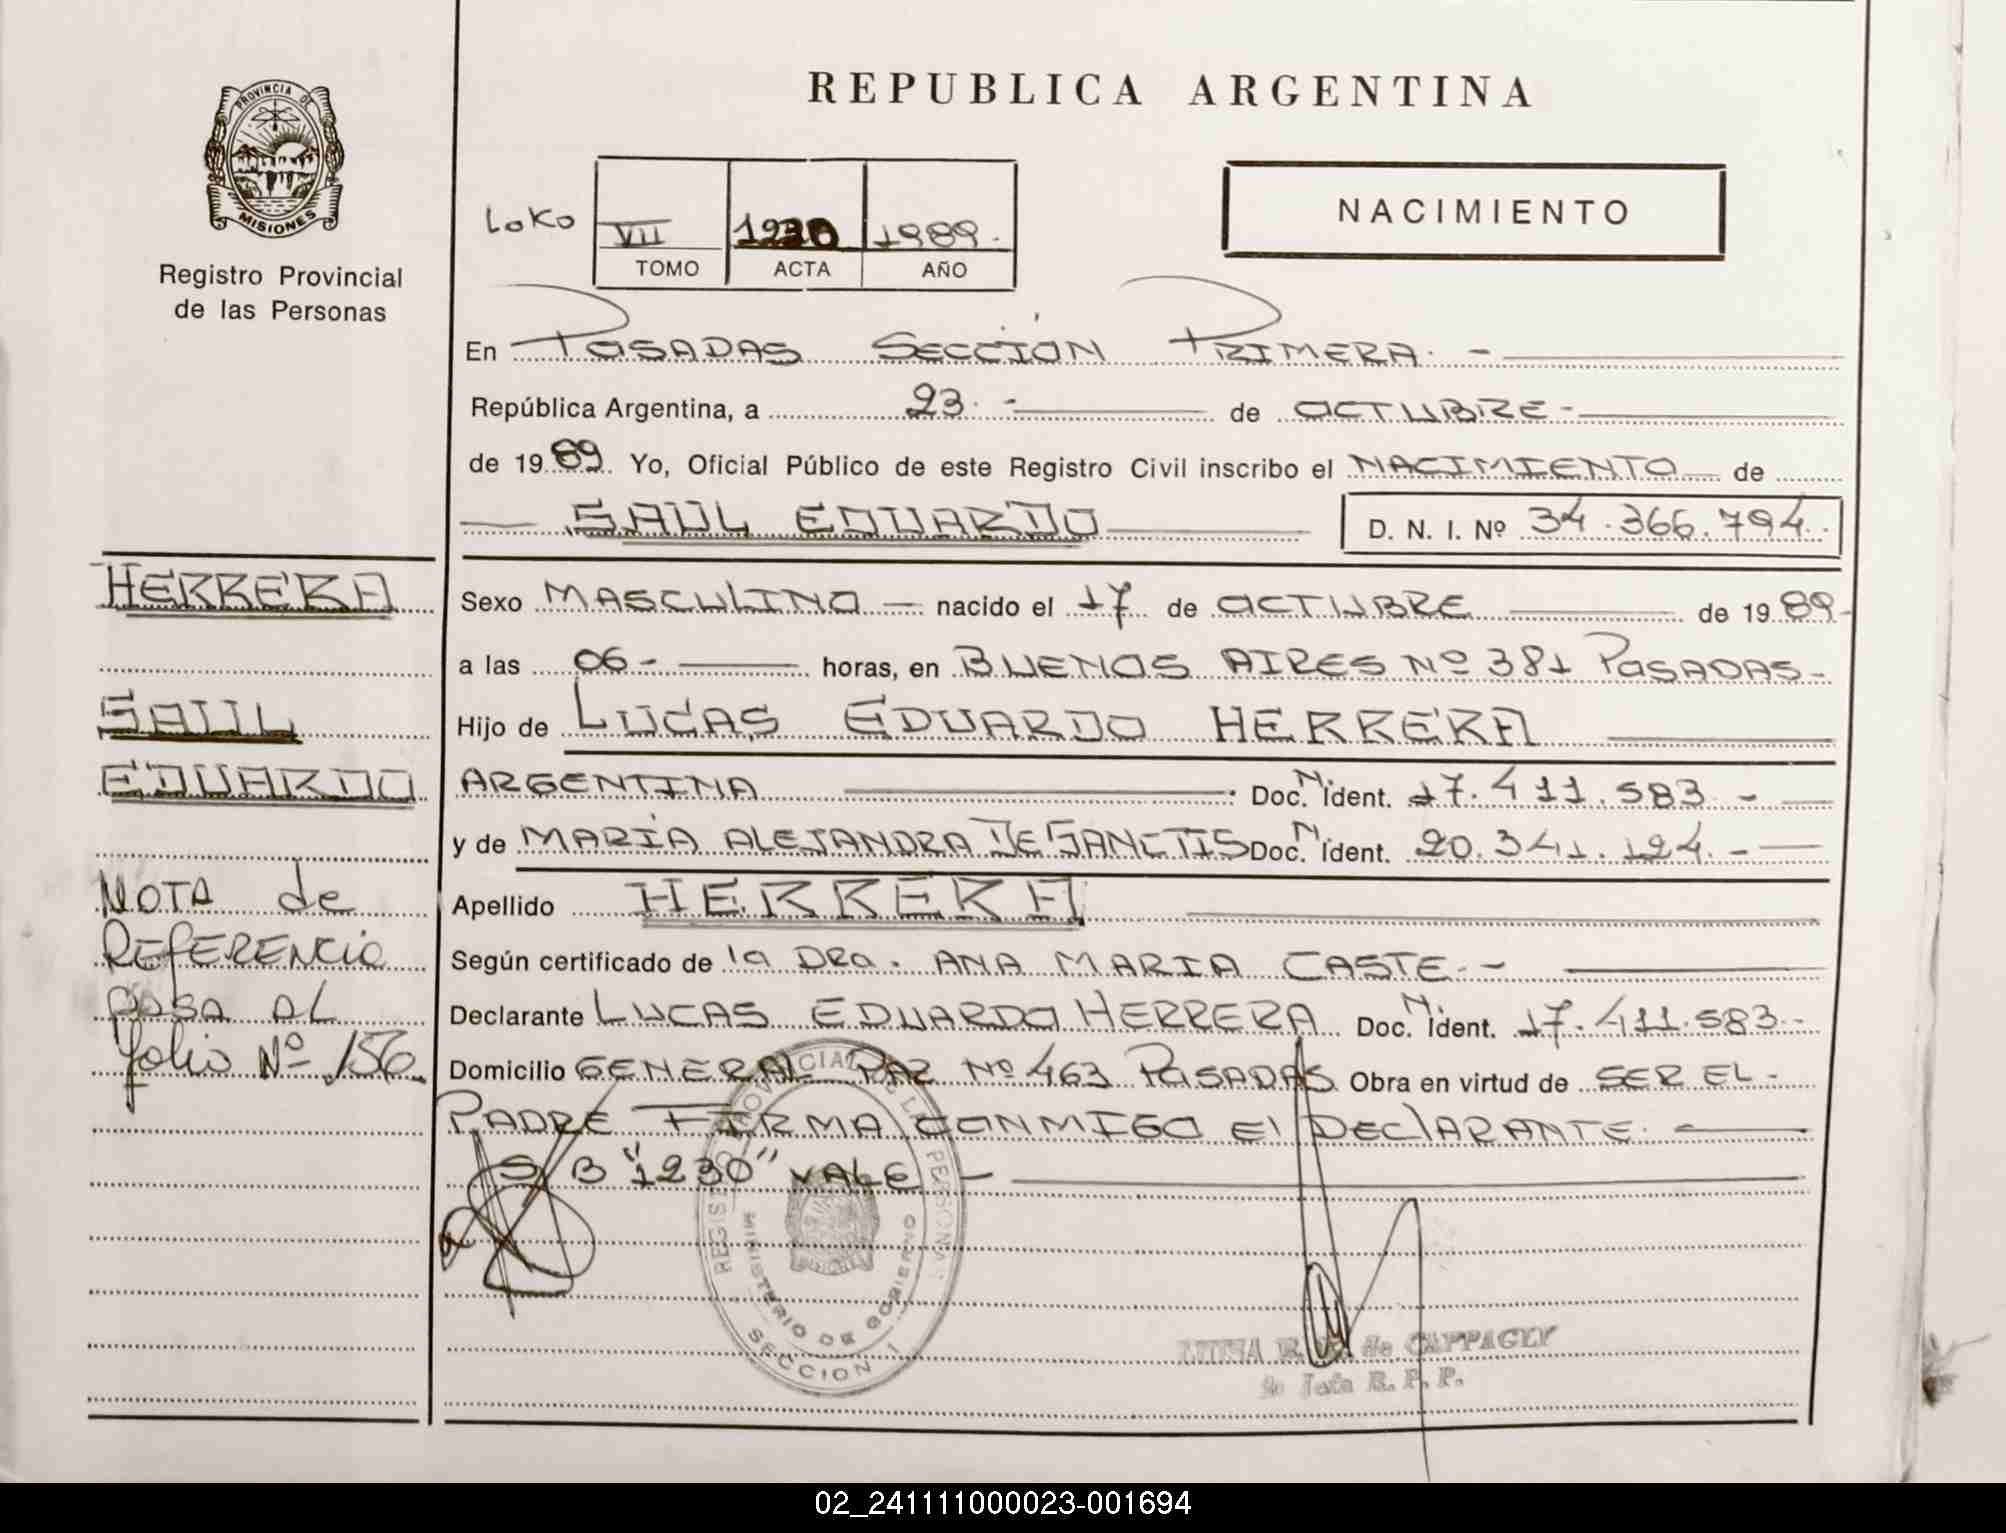 PROVINCIA DE
MISIONES
Registro Provincial
de las Personas
REPUBLICA ARGENTINA
NACIMIENTO
LOKO
VII 1230 1989.
TOMO ACTA AÑO
En POSADAS SECCIÓN PRIMERA. -
República Argentina, a 23. - de OCTUBRE -
de 1989 Yo, Oficial Público de este Registro Civil inscribo el NACIMIENTO de
SAUL EDUARDO D. N. I. Nº 34.366.794.
Sexo MASCULINO - nacido el 17 de OCTUBRE de 1989-
a las 06 - horas, en BUENOS AIRES Nº 381 POSADAS -
Hijo de LUCAS EDUARDO HERRERA
ARGENTINA Doc. N. Ident. 17.411.583 -
y de MARÍA ALEJANDRA DE SANCTIS Doc. N. Ident. 20.341.124. -
Apellido HERRERA
Según certificado de la DRa. ANA MARIA CASTE. -
Declarante LUCAS EDUARDO HERRERA Doc. N. Ident. 17.411.583 -
Domicilio GENERAL PAZ Nº 463 POSADAS Obra en virtud de SER EL -
PADRE FIRMA CONMIGO El DEClARANTE. -
S/B "1230" VALE -
HERRERA
SAUL
EDUARDO
NOTA de
REFERENCIA
PASA AL
folio Nº 156.
REGISTRO PROVINCIAL DE LAS PERSONAS
MINISTERIO DE GOBIERNO
SECCION 1
de CAPPAGLY
Jefa R. P. P.
02_241111000023-001694